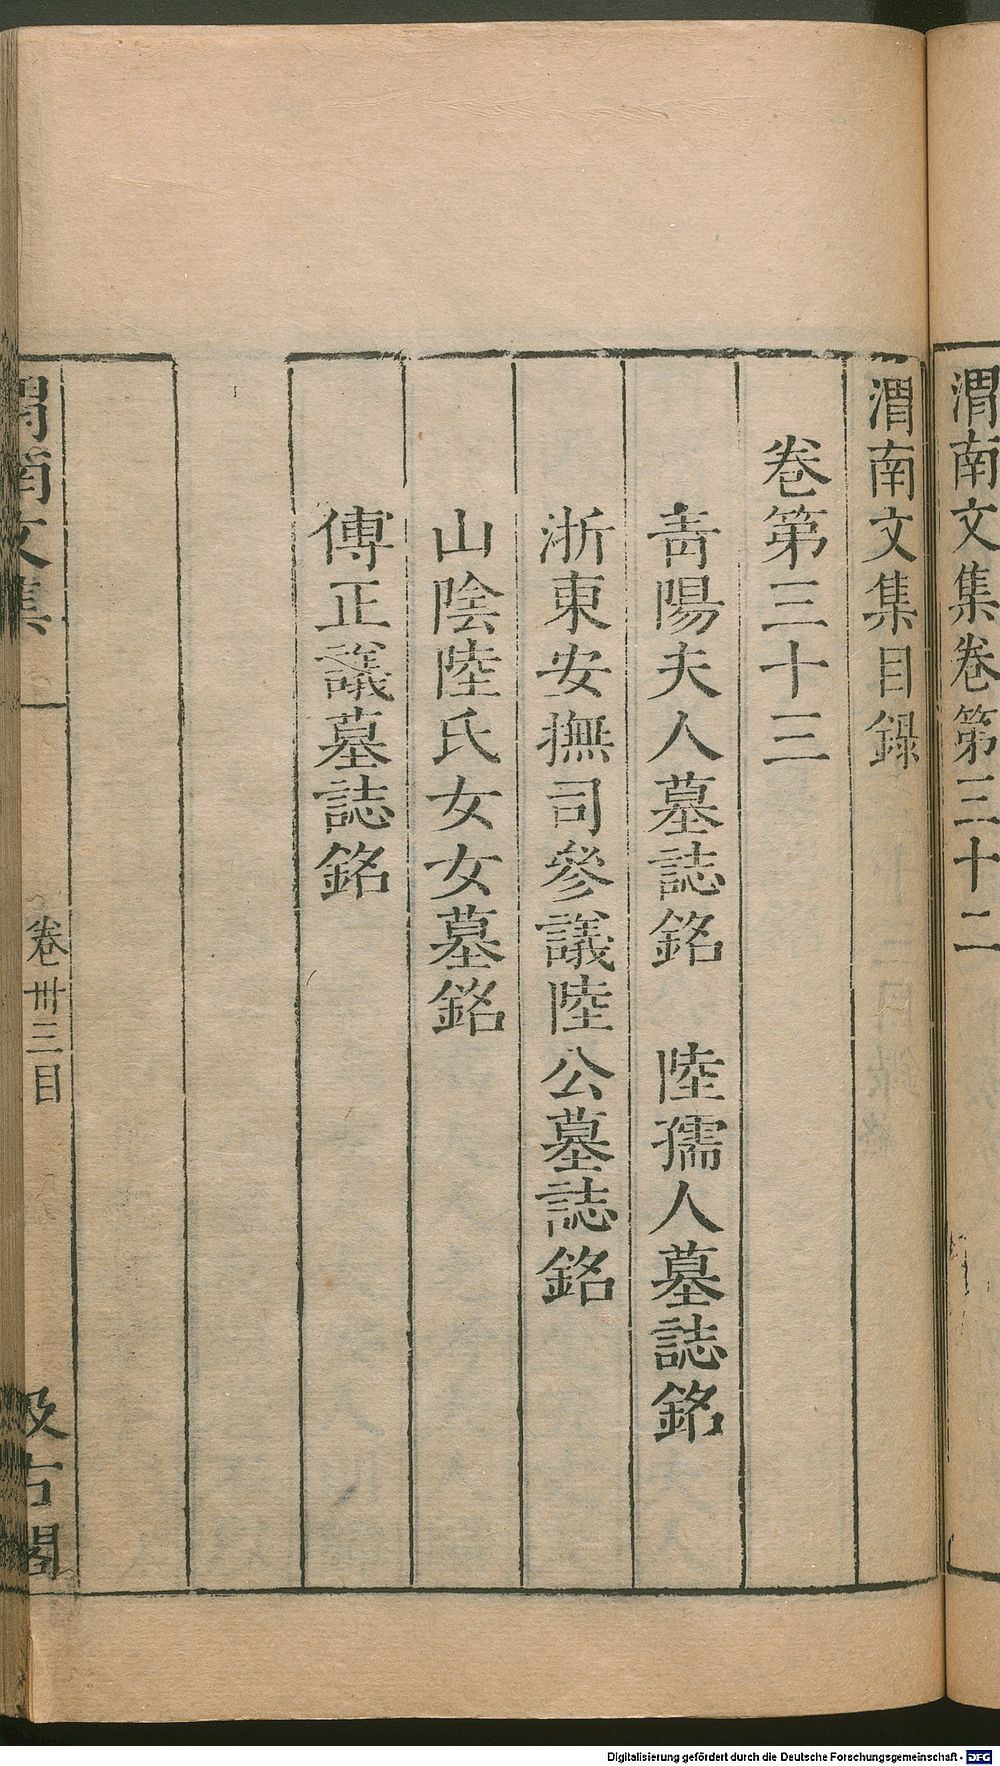 渭南文集卷第三十二
渭南文集目錄
卷第三十三
靑陽夫人墓誌銘　陸孺人墓誌銘
浙東安撫司參議陸公墓誌銘
山陰陸氏女女墓銘
傅正議墓誌銘
渭南文集　卷卅三目　汲古閣
Digitalisierung gefördert durch die Deutsche Forschungsgemeinschaft - DFG